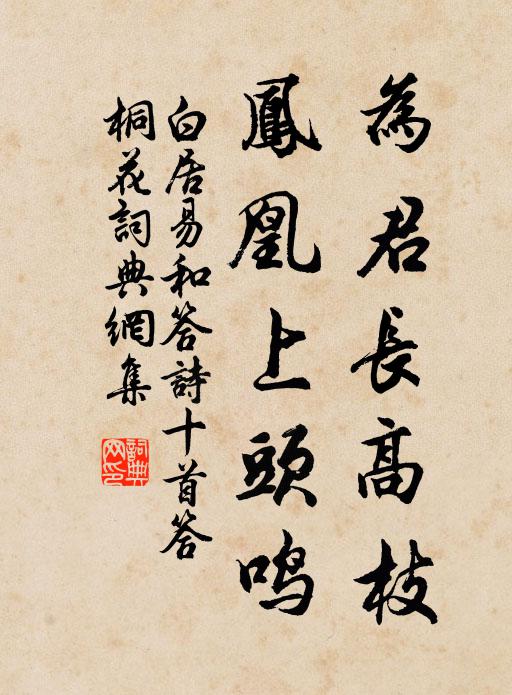 為君長高枝
鳳凰上頭鳴
白居易和答詩十首答
桐花詞典網集
詞典网印